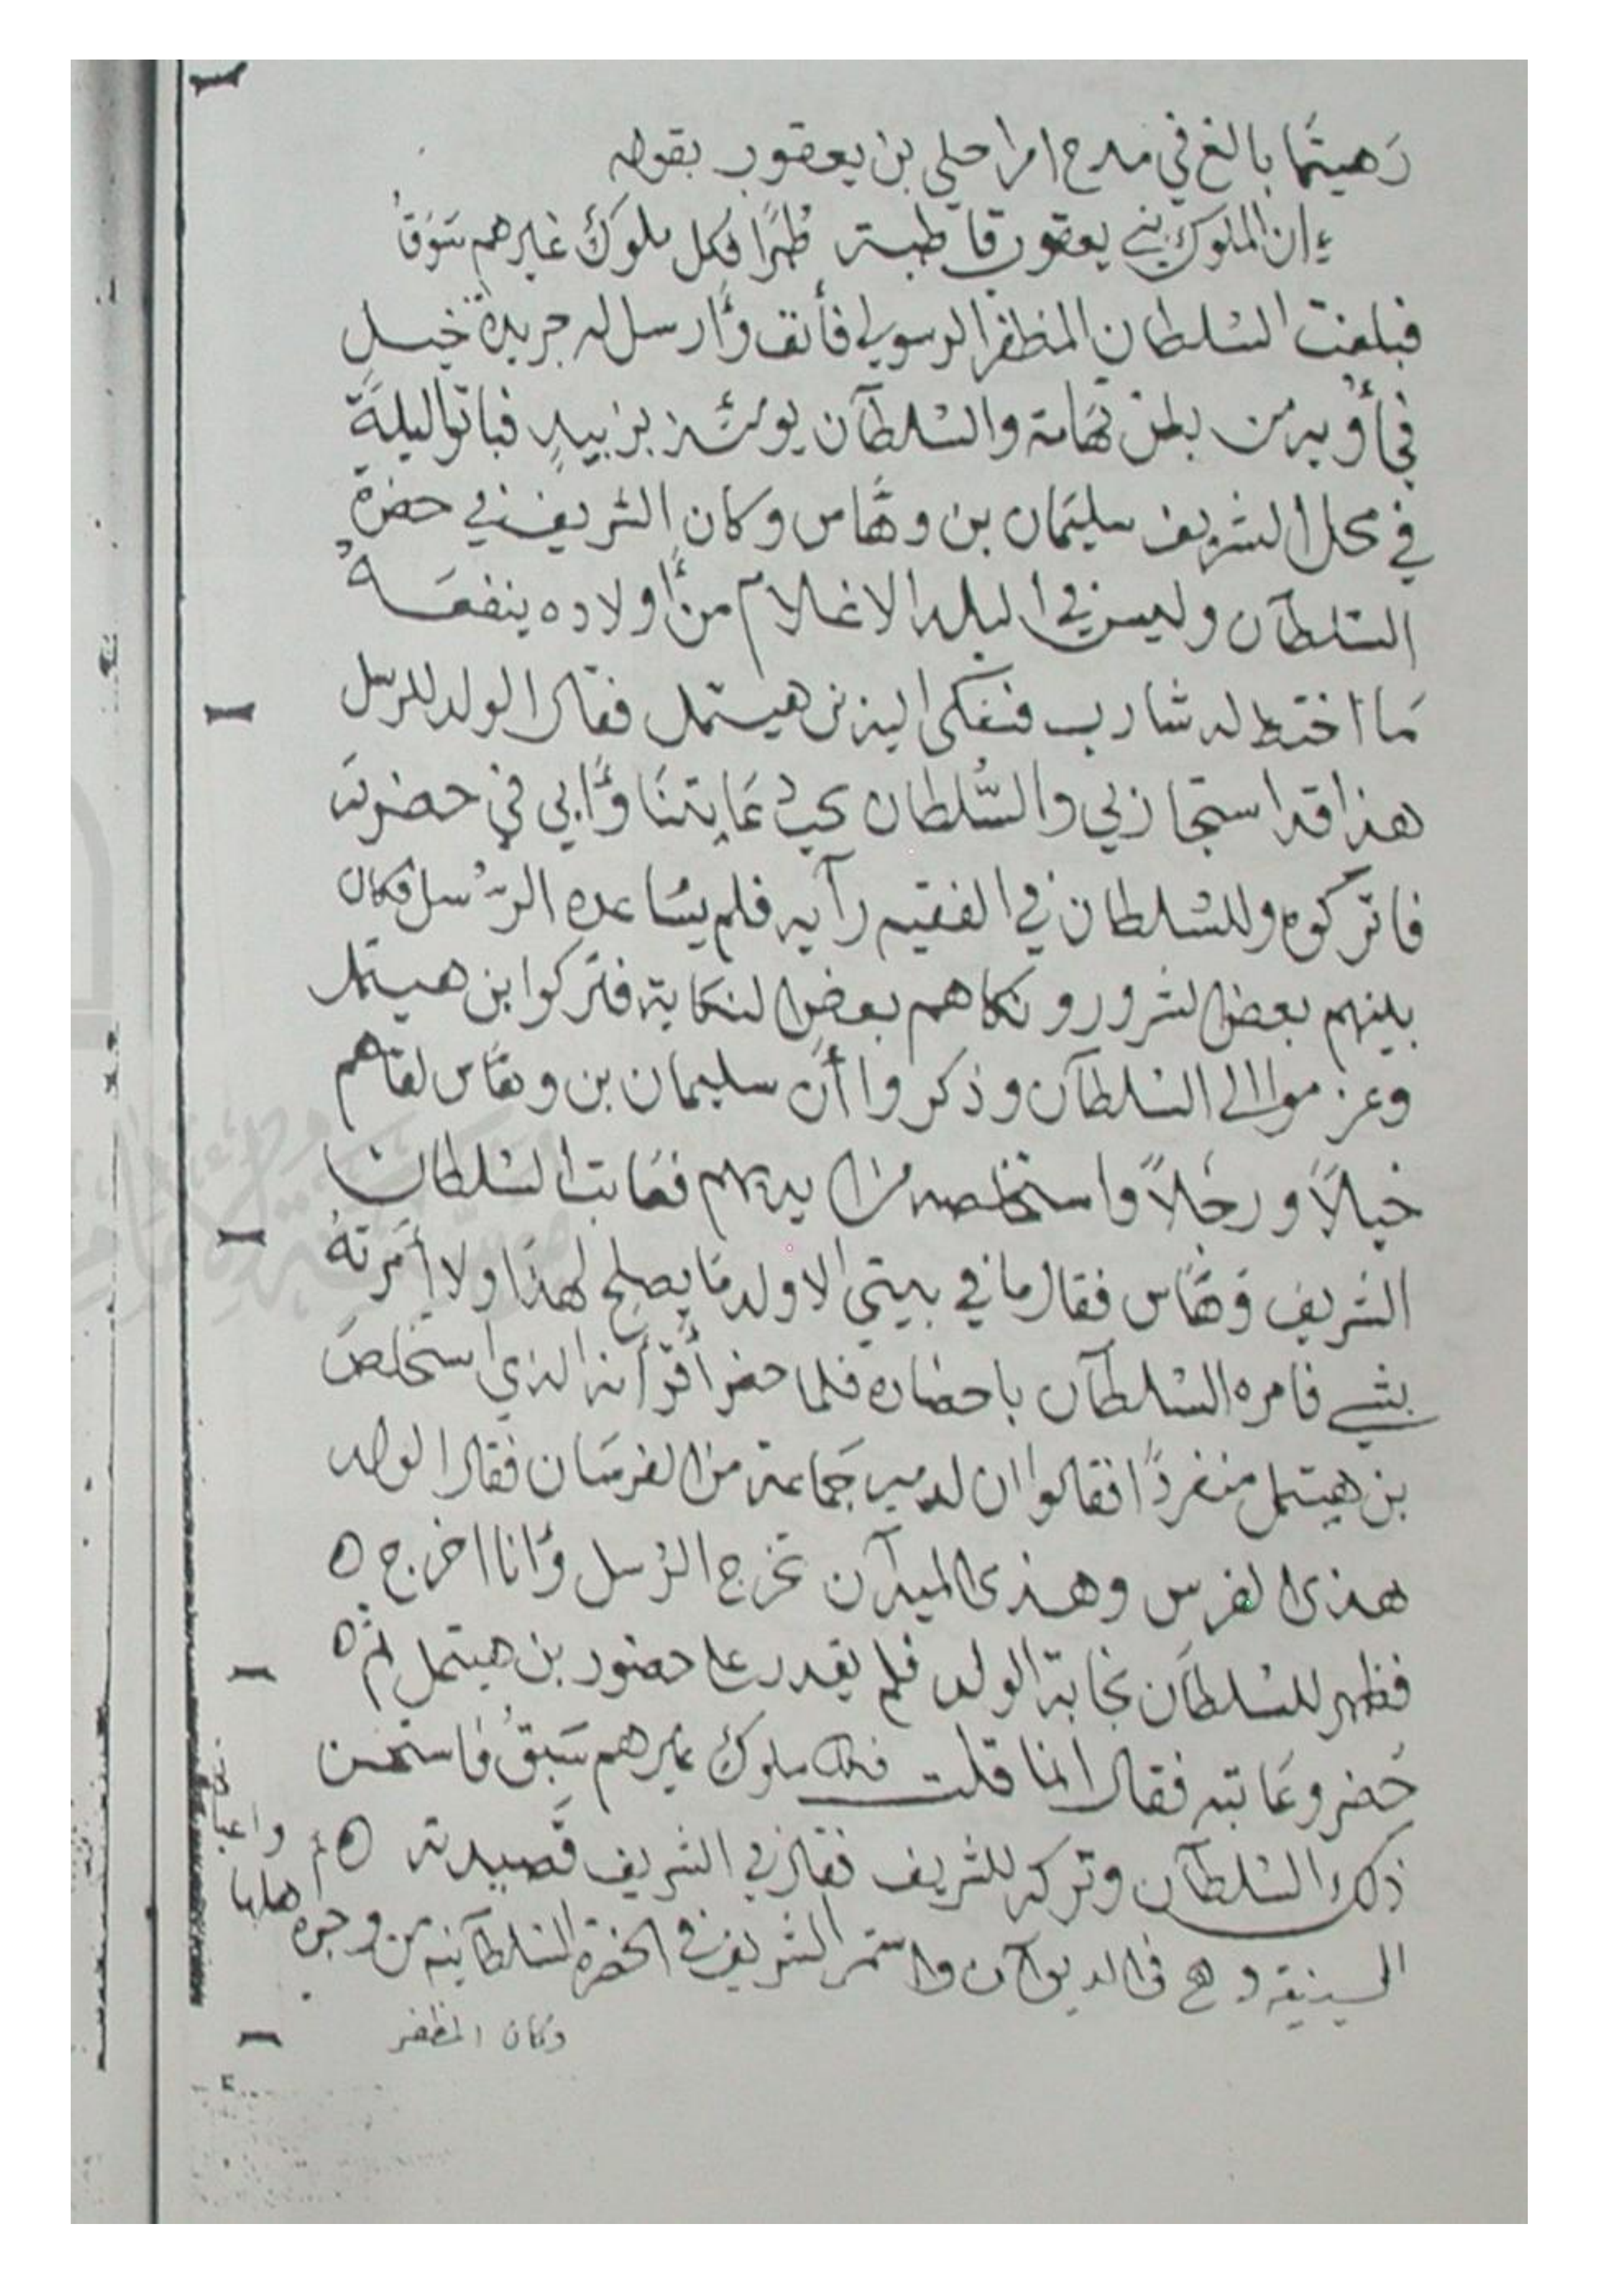 رَهيتما بالغ في مدح امرا حلي بن يعقوب بقوله
ان الملوك بني يعقوب قاطبة طُرًا فكل ملوك غيرهم سَوَقُ
فبلغت السلطان المظفر الرسولي فأنف وأرسل له جريدة خيل
في أوبه من بطن تهامة والسلطان يومئذ بزبيد فباتوا ليلة
في محل الشريف سليمان بن وهّاس وكان الشريف في حضرة
السلطان وليس في البلد الا غلام من أولاده ينفعه
مَا اختط له شارب فشكى اليه بن هيتمل فقال الولد للرسل
هذا قد استجار بي والسُّلطان يحب عَايتنا وأبي في حضرته
فاتركوه وللسلطان في الفقيه رآيه فلم يسُاعده الرّسل فكان
بينهم بعض الشرور ونكاهم بعض النكاية فتركوا بن هيتمل
وعزموا الى السلطان وذكروا أن سليمان بن وهاس لقاهم
خيلاً ورجلاً واستخلصه من ايديهم فعَاتب السلطان
الشريف وَهّاس فقال ما في بيتي الا ولد مَا يصلح لهذا ولا أمَرتهُ
بشي فامره السلطان باحضاره فلما حضر أقرّ أنه الذي استخلصَ
بن هيتمل منفردًا فقالوا ان لديه جَماعة من الفرسَان فقال الولد
هذى الفرس وهذى الميدان تخرج الرُسل وأنا اخرج ه
فظهر للسلطان نجابة الولد فلم يقدر علا حضور بن هيتمل ثم ه
حَضر وعَاتبه فقال انما قلت فكل ملوك غيرهم سَبَقُ فاستحسن
ذلك السلطان وتركه للشريف فقال في الشريف قَصيدته
السينيه وهي في الديوان واستمر الشريف في الحضرة السلطانيه من وجوه
وكان المظفر